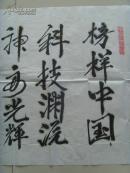 榜样中国
科技渊源
神安光辉